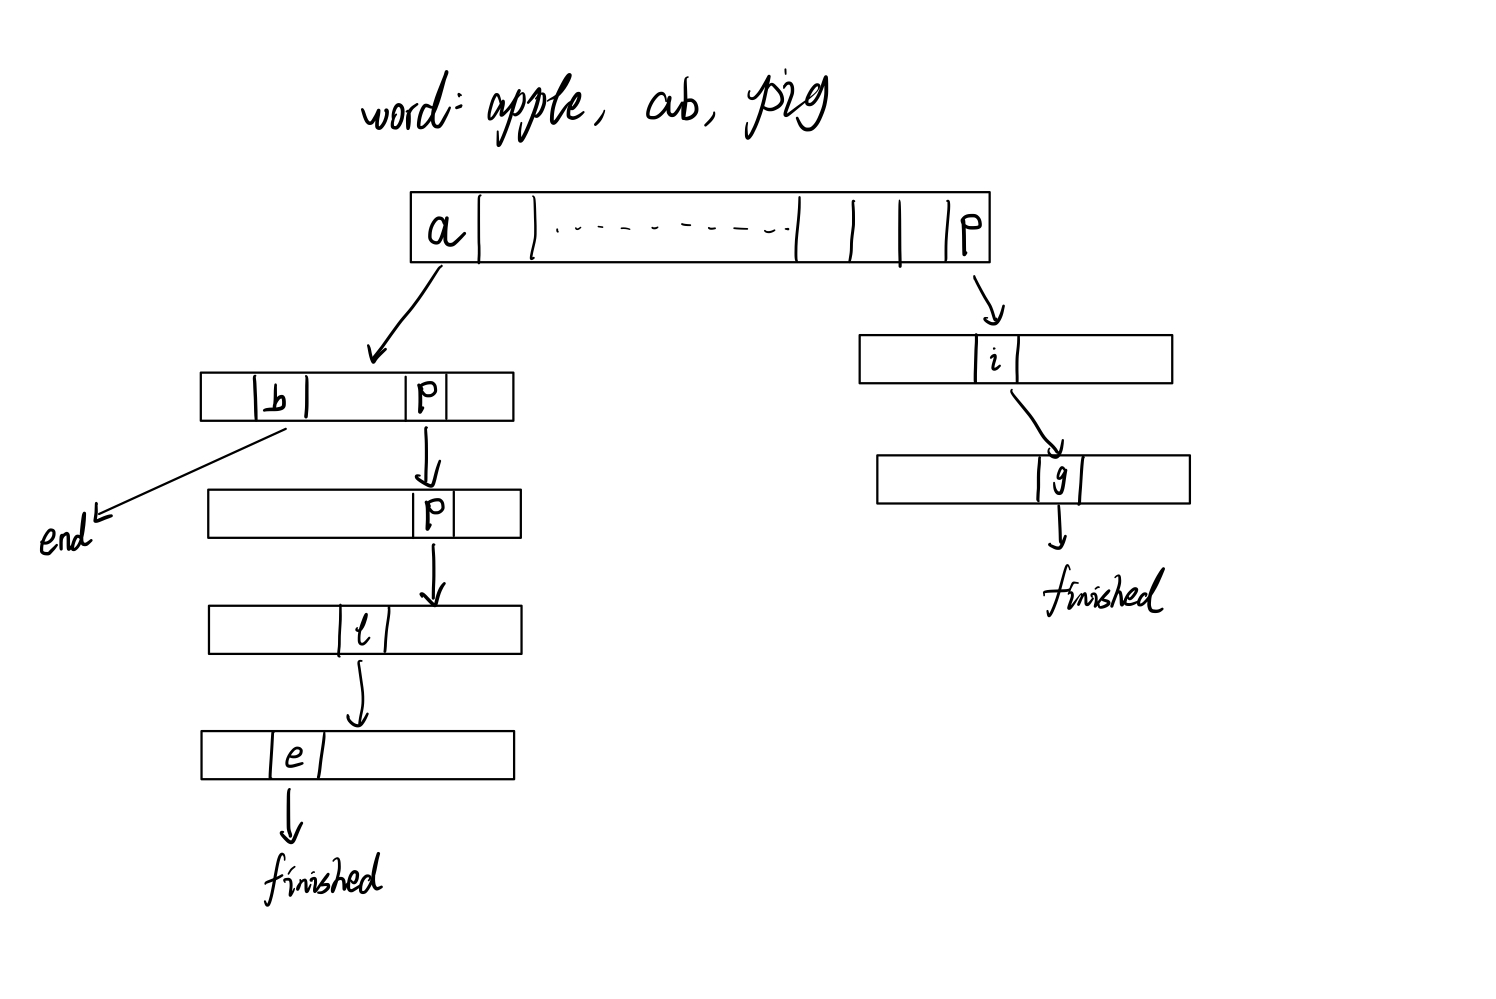 word: apple, ab, pig
a p
i
b p
g
p
end
finished
l
e
finished